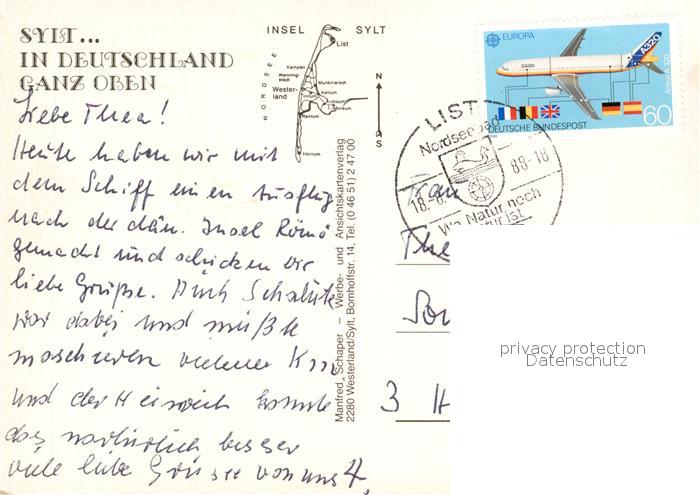 SYLT...
IN DEUTSCHLAND
GANZ OBEN
INSEL SYLT
NORDSEE
List
Kampen
Wenningstedt
Westerland
Munkmarsch
Keitum
Archsum
Morsum
Rantum
Hörnum
N
S
Liebe Thea!
Heute haben wir mit
dem Schiff einen Ausflug
nach der dän. Insel Römö
gemacht und schicken Dir
liebe Grüße. Auch
war dabei und mußte
und der Heinrich konnte
das natürlich besser
viele liebe Grüsse von uns 4.
Manfred Schaper – Werbe- und Ansichtskartenverlag
2280 Westerland/Sylt, Bomhoffstr. 14, Tel. (0 46 51) 2 47 00
EUROPA
A320
Airbus A 320
DEUTSCHE BUNDESPOST
60
LIST
Nordseebad
18.-8. 88-18
Wo Natur noch
Natur ist
Frau
The
3 H
privacy protection
Datenschutz